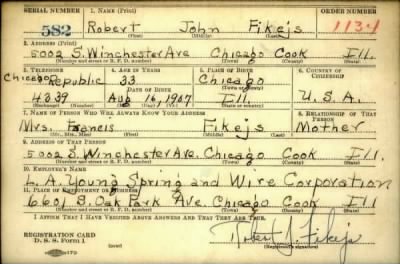 SERIAL NUMBER 1. NAME (Print) ORDER NUMBER
582 Robert John Fikejs 1134
(First) (Middle) (Last)
2. ADDRESS (Print)
5002 S. Winchester Ave Chicago Cook Ill.
(Number and street or R. F. D. number) (Town) (County) (State)
3. TELEPHONE 4. AGE IN YEARS 5. PLACE OF BIRTH 6. COUNTRY OF CITIZENSHIP
Chicago Republic 33 Chicago
(Town or county)
4339 Aug 16, 1907 Ill. U.S.A.
7. NAME OF PERSON WHO WILL ALWAYS KNOW YOUR ADDRESS 8. RELATIONSHIP OF THAT PERSON
Mrs. Francis Fikejs Mother
(Mr., Mrs., Miss) (First) (Middle) (Last)
9. ADDRESS OF THAT PERSON
5002 S. Winchester Ave. Chicago Cook Ill.
(Number and street or R. F. D. number) (Town) (County) (State)
10. EMPLOYER'S NAME
L. A. Young Spring and Wire Corporation
11. PLACE OF EMPLOYMENT OR BUSINESS
6601 S. Oak Park Ave. Chicago Cook Ill.
(Number and street or R. F. D. number) (Town) (County) (State)
I AFFIRM THAT I HAVE VERIFIED ABOVE ANSWERS AND THAT THEY ARE TRUE.
REGISTRATION CARD
D. S. S. Form 1 Robert J. Fikejs